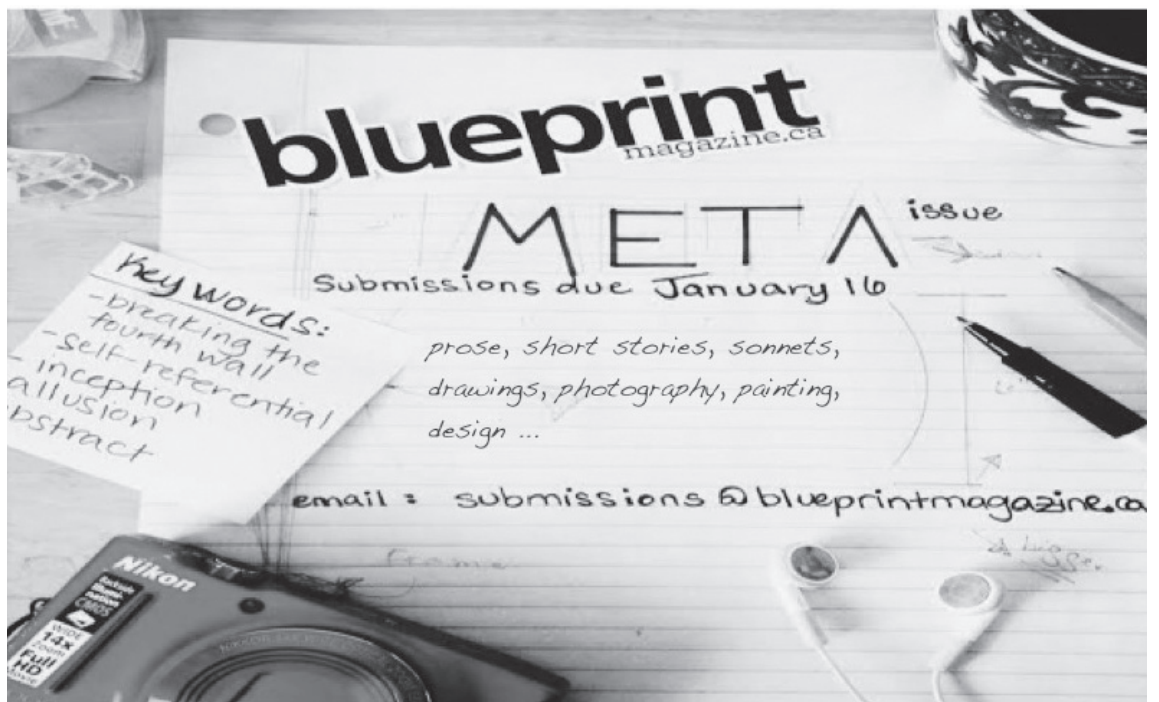 blueprint
magazine.ca
META issue
Submissions due January 16
Key words:
- breaking the
fourth wall
- self-referential
- inception
- allusion
bstract
prose, short stories, sonnets,
drawings, photography, painting,
design ...
email : submissions @ blueprintmagazine.ca
frame
bigger
Nikon
Backside
Illumi-
nation
CMOS
WIDE
14x
Zoom
Full
HD